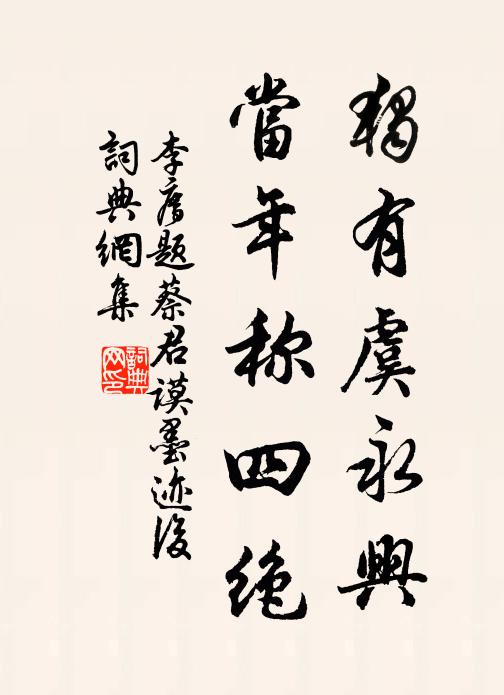 獨有虞永興
當年称四絶
李廌题蔡君謨墨迹後
詞典網集
詞典网印